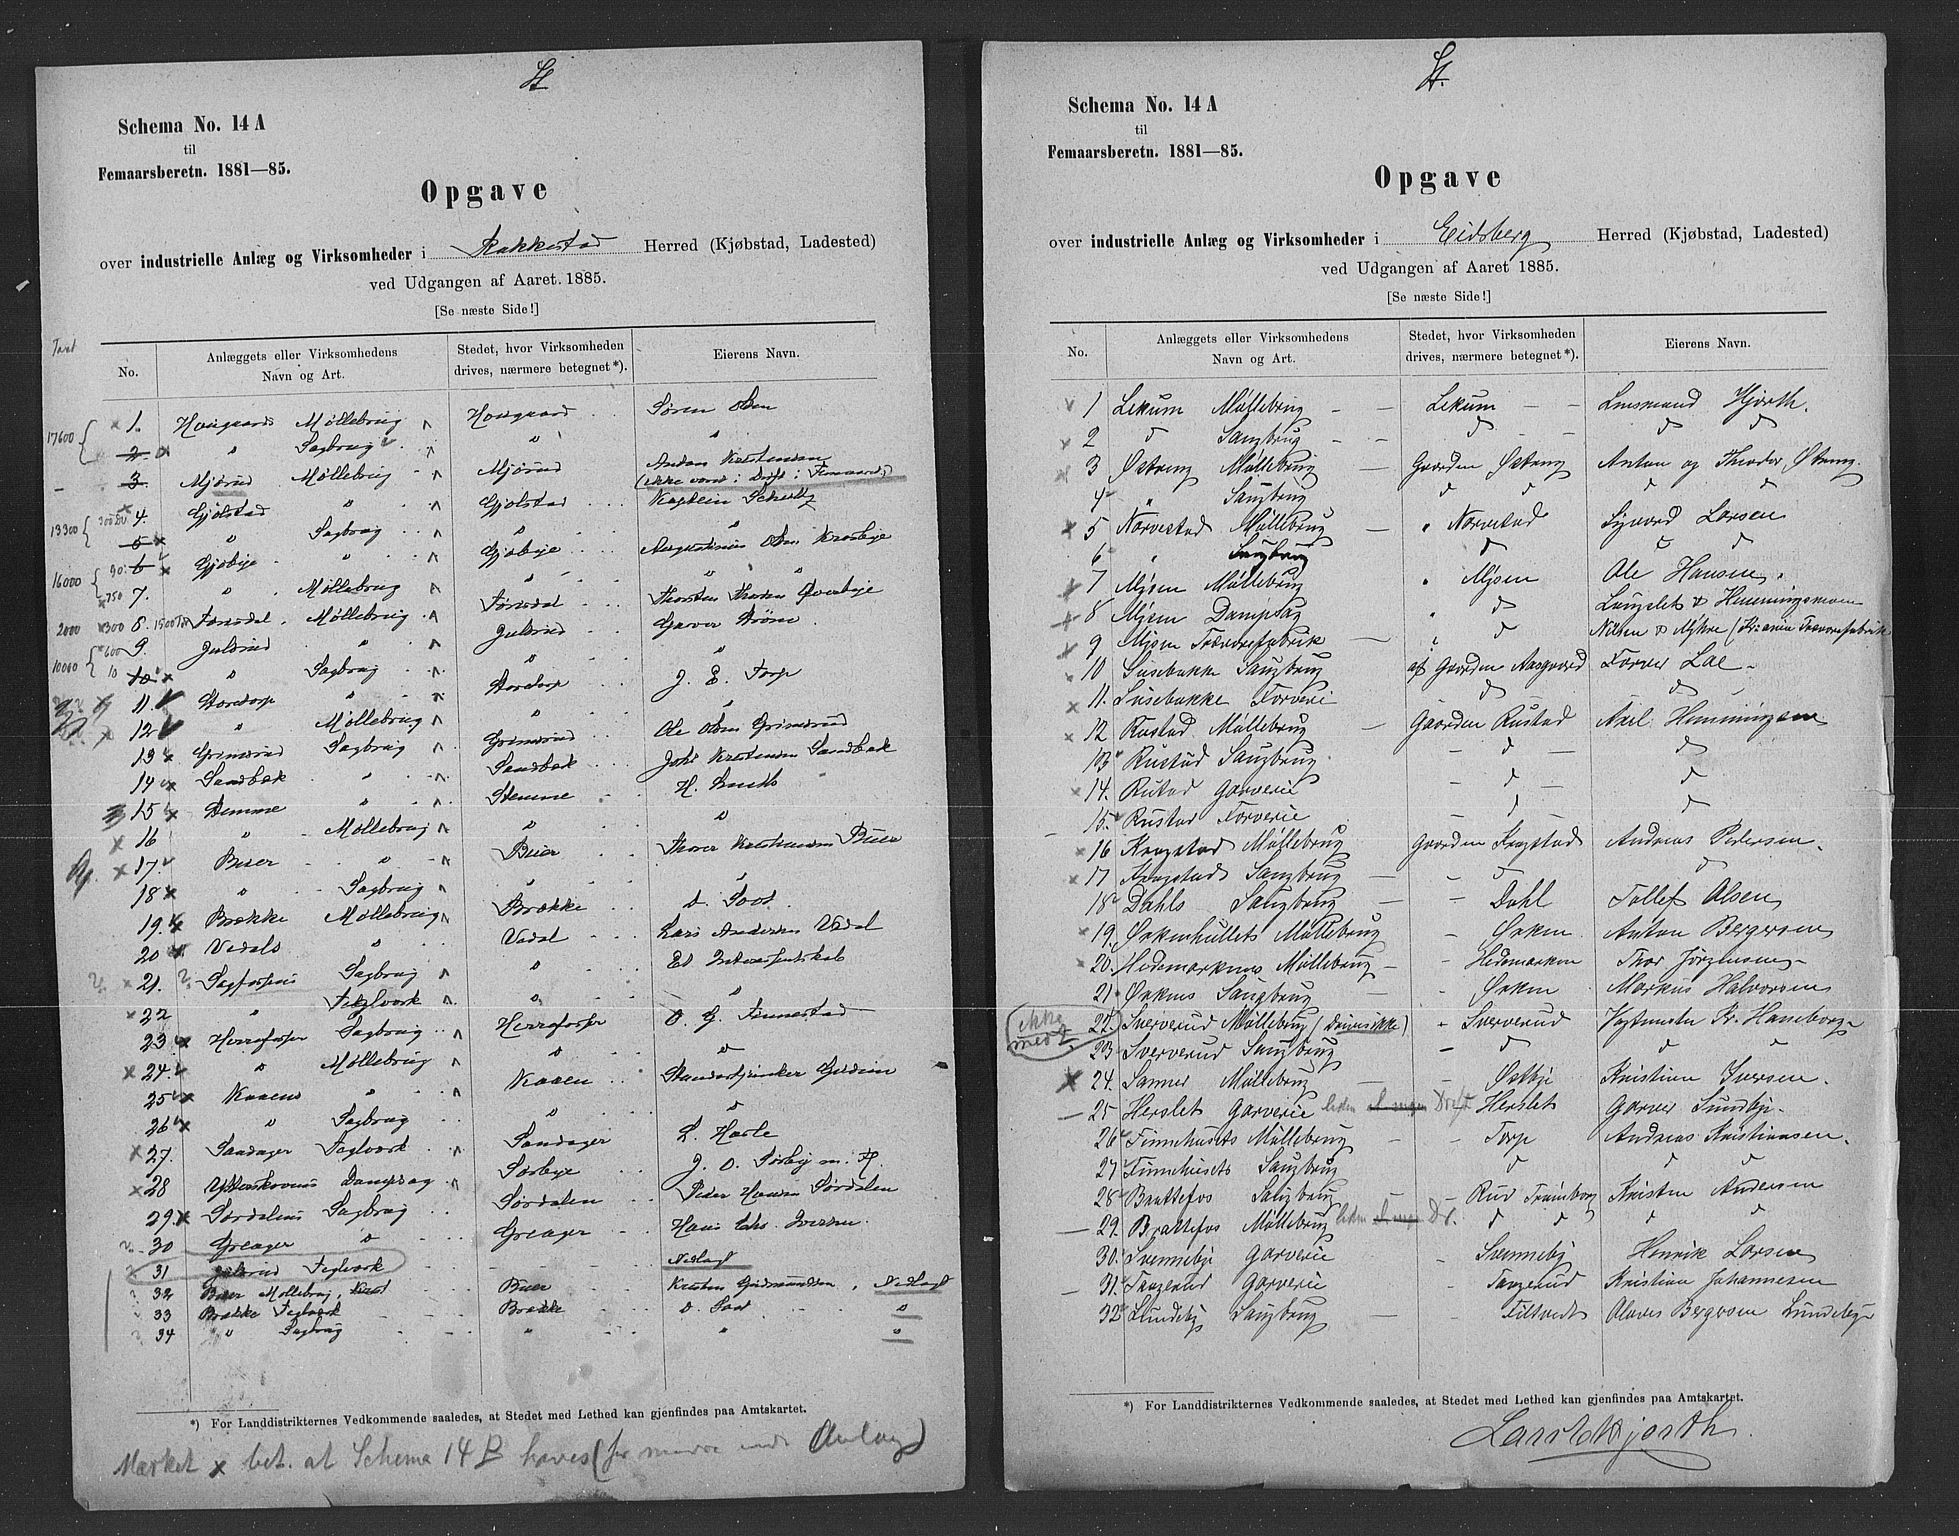 Schema No. 14 A
til
Femaarsberetn. 1881—85.
Opgave
over industrielle Anlæg og Virksomheder i Rakkestad Herred (Kjøbstad, Ladested)
ved Udgangen af Aaret 1885.
[Se næste Side!]
No. Anlæggets eller Virksomhedens Navn og Art. Stedet, hvor Virksomheden drives, nærmere betegnet*). Eierens Navn.
17600
x 1. Møllebrug Søren Olsen
2. " Sagbrug " "
3. Mjørud Møllebrug Mjørud Anders Kristensen
(ikke været i Drift i Femaaret)
13300
4. Gjølstad " Gjølstad Kaptein Schultz
5 x " Sagbrug " "
16000
6 x Gjøbye " Gjøbye Olsen
7. " Møllebrug " "
2000 x300 8. Møllebrug Thorsten
10000
9. Julsrud " Julsrud Garver Strøm
10 x " Sagbrug " "
11. Stordorp " Stordorp J. E. Torp
12 " Møllebrug " "
13 x Grimsrud Sagbrug Grimsrud Ole Olsen Grimsrud
14 x Sandbæk " Sandbæk Kristensen Sandbæk
15 x Stemme " Stemme H.
x 16 " Møllebrug " "
x 17. Buer " Buer Thorer Kristiansen Buer
18 x " Sagbrug " "
19. x Brække Møllebrug Brække O. Soot.
20 x Vedals " Vedal Lars Andersen Vedal
x 21. Sagfossens Sagbrug " Et Interessentskab
x 22 " Teglværk " "
23 x Herrefosser Sagbrug Herrefosser O. G. Finnestad
x 24. " Møllebrug " "
25 x Kaaens " Kaaen
26 x " Sagbrug " "
x 27. Sandager Teglværk Sandager L. Harle
x 28 Dampsag Sørbye J. O. Sørby m. fl.
29 x Sørdalens Sagbrug Sørdalen Peder Hansen Sørdalen
30 Greager " Greager Hans Chr. Iversen
31 Julsrud Teglværk Nedlagt
32 Buer Møllebrug Buer Kristen Gudmundsen, Nedlagt
33 Brække Teglværk Brække O. Soot "
34 " Sagbrug " " "
*) For Landdistrikternes Vedkommende saaledes, at Stedet med Lethed kan gjenfindes paa Amtskartet.
Mærket x bet. at Schema 14 B haves (for mindre Anlæg)
Schema No. 14 A
til
Femaarsberetn. 1881—85.
Opgave
over industrielle Anlæg og Virksomheder i Eidsberg Herred (Kjøbstad, Ladested)
ved Udgangen af Aaret 1885.
[Se næste Side!]
No. Anlæggets eller Virksomhedens Navn og Art. Stedet, hvor Virksomheden drives, nærmere betegnet*). Eierens Navn.
1 Lekum Møllebrug Lekum Lensmand Hjorth.
x 2 " Saugbrug " " "
x 3 Østreng Møllebrug Gaarden Østreng Anton og Theodor Østreng.
4 " Saugbrug " " " "
x 5 Narvestad Møllebrug " Narvestad Sigvard Larsen
6 " Saugbrug " " "
x 7 Mysen Møllebrug " Mysen Ole Hansen.
8 Mysen Dampsag " " Langslet & Henningsmoen
x 9 Mysen Trævarefabrik " " Nilsen & Myhre (Kr.ania Trævarefabrik
10 Susebakke Saugbrug af Gaarden Aasgaard Farver Lae
x 11. Susebakke Farveri " "
x 12 Rustad Møllebrug Gaarden Rustad Axel Henningsen
13 Rustad Saugbrug. " "
x 14. Rustad Garverie " "
15. Rustad Farverie " "
x 16 Kragstad Møllebrug Gaarden Kragstad Andreas Pedersen.
x 17 Kragstad Saugbrug " "
18 Dahls Saugbrug Dahl Tollef Olsen
x 19. Ørkenhullets Møllebrug Ørken Anton Bergersen
x 20. Hedemarkens Møllebrug Hedemarken Thor Jørgensen
21 Ørkens Saugbrug Ørken Markus Halvorsen
(ikke med) 22. Sververud Møllebrug (Drives ikke) Sververud Vegtmester Fr. Haneborg
23 Sververud Saugbrug " " "
x 24. Sanner Møllebrug Østby Kristian Iversen.
25 Herslet Garverie liden Drift Herslet Garver Sundby.
26 Finnehusets Møllebrug Torp Andreas Kristiansen.
27 Finnehusets Saugbrug " " "
28 Brattefos Saugbrug Rud Trømborg Kristen Andersen
29. Brattefos Møllebrug liden Dr. " " " "
30. Svenneby Garverie Svenneby Henrik Larsen
31. Tangerud Garverie Tangerud Kristian Johannesen
32 Slundeby Saugbrug Tiltvedt Olaves Bergersen Lundeby
*) For Landdistrikternes Vedkommende saaledes, at Stedet med Lethed kan gjenfindes paa Amtskartet.